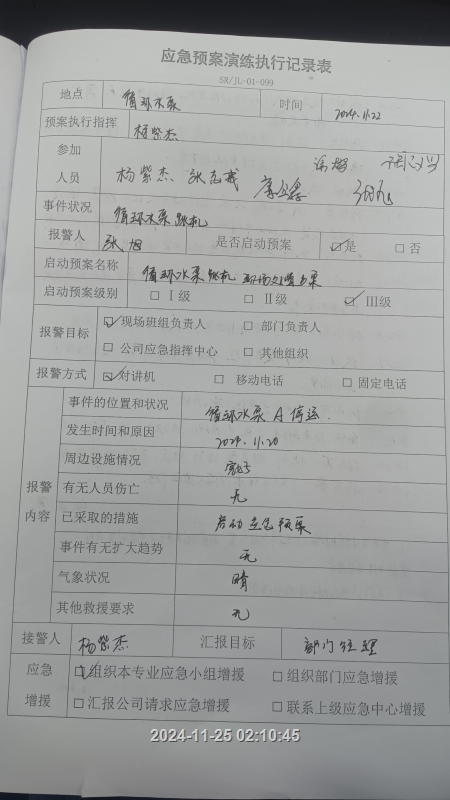 应急预案演练执行记录表
SR/JL-01-099
地点 循环水泵 时间 2024.11.22
预案执行指挥 杨紫杰
参加人员 杨紫杰、张志成
事件状况 循环水泵跳机
报警人 张旭 是否启动预案 ☑是 □否
启动预案名称 循环水泵跳机现场处置方案
启动预案级别 □Ⅰ级 □Ⅱ级 ☑Ⅲ级
报警目标 ☑现场班组负责人 □部门负责人
□公司应急指挥中心 □其他组织
报警方式 ☑对讲机 □移动电话 □固定电话
报警内容
事件的位置和状况 循环水泵A停运.
发生时间和原因 2024.11.20
周边设施情况 完好
有无人员伤亡 无
已采取的措施 启动应急预案
事件有无扩大趋势 无
气象状况 晴
其他救援要求 无
接警人 杨紫杰 汇报目标 部门经理
应急增援 ☑组织本专业应急小组增援 □组织部门应急增援
□汇报公司请求应急增援 □联系上级应急中心增援
2024-11-25 02:10:45